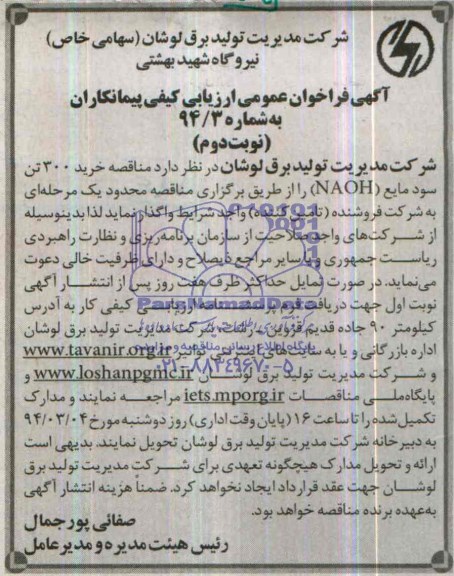 شرکت مدیریت تولید برق لوشان (سهامی خاص)
نیروگاه شهید بهشتی
آگهی فراخوان عمومی ارزیابی کیفی پیمانکاران
به شماره ۹۴/۳
(نوبت دوم)
شرکت مدیریت تولید برق لوشان در نظر دارد مناقصه خرید ۳۰۰ تن
سود مایع (NAOH) را از طریق برگزاری مناقصه محدود یک مرحله‌ای
به شرکت فروشنده (تامین کننده) واجد شرایط واگذار نماید لذا بدینوسیله
از شرکت‌های واجد صلاحیت از سازمان برنامه ریزی و نظارت راهبردی
ریاست جمهوری و یا سایر مراجع ذیصلاح و دارای ظرفیت خالی دعوت
می‌نماید. در صورت تمایل حداکثر ظرف هفت روز پس از انتشار آگهی
نوبت اول جهت دریافت فرم ارزیابی کیفی کار به آدرس
کیلومتر ۹۰ جاده قدیم قزوین - رشت، شرکت مدیریت تولید برق لوشان
اداره بازرگانی و یا به سایت‌های اینترنتی توانیر www.tavanir.org.ir
و شرکت مدیریت تولید برق لوشان www.loshanpgmc.ir و
پایگاه ملی مناقصات iets.mporg.ir مراجعه نمایند و مدارک
تکمیل شده را تا ساعت ۱۶ (پایان وقت اداری) روز دوشنبه مورخ ۹۴/۰۳/۰۴
به دبیرخانه شرکت مدیریت تولید برق لوشان تحویل نمایند. بدیهی است
ارائه و تحویل مدارک هیچگونه تعهدی برای شرکت مدیریت تولید برق
لوشان جهت عقد قرارداد ایجاد نخواهد کرد. ضمناً هزینه انتشار آگهی
به‌عهده برنده مناقصه خواهد بود.
صفائی پور جمال
رئیس هیئت مدیره و مدیر عامل
ParsNamadData
پایگاه اطلاع رسانی مناقصه و مزایده
۰۲۱-۸۸۳۴۹۶۷۰-۵